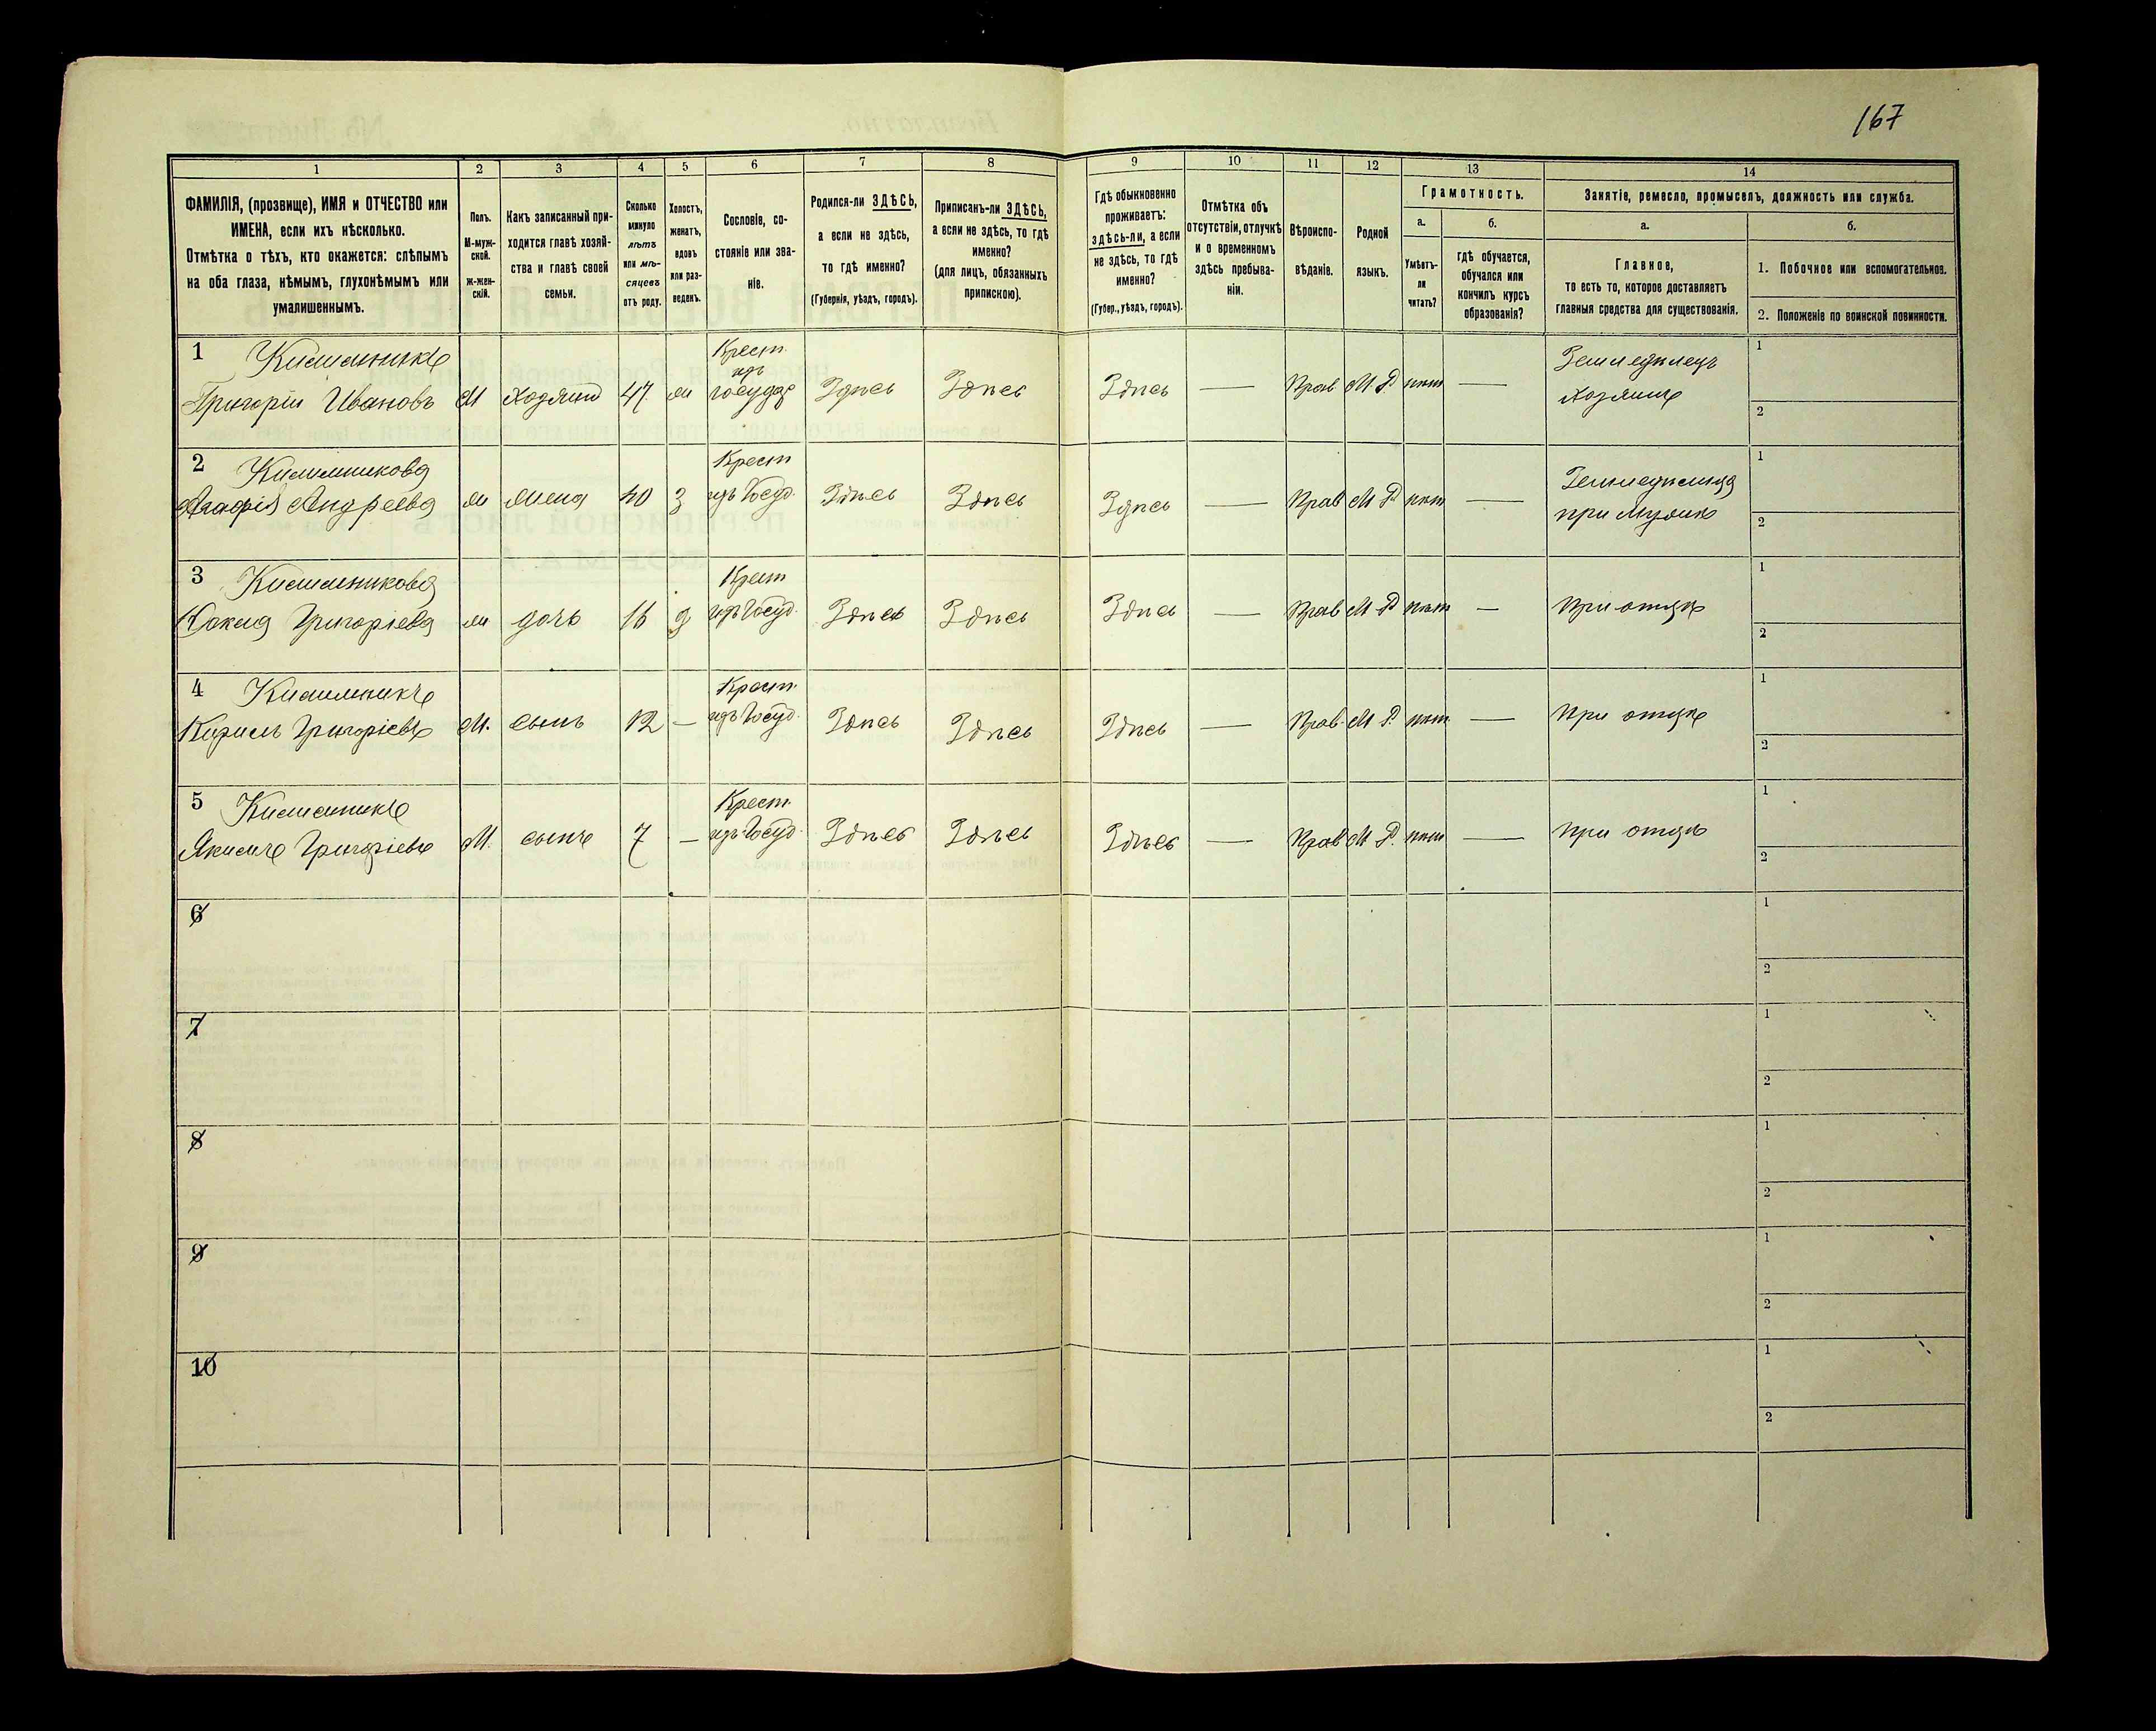 167
1 2 3 4 5 6 7 8 9 10 11 12 13 14
ФАМИЛІЯ, (прозвище), ИМЯ и ОТЧЕСТВО или
ИМЕНА, если ихъ нѣсколько.
Отмѣтка о тѣхъ, кто окажется: слѣпымъ
на оба глаза, нѣмымъ, глухонѣмымъ или
умалишеннымъ.
Полъ.
М-муж-
ской.
Ж-жен-
скій.
Какъ записанный при-
ходится главѣ хозяй-
ства и главѣ своей
семьи.
Сколько
минуло
лѣтъ
или мѣ-
сяцевъ
отъ роду.
Холостъ,
женатъ,
вдовъ
или раз-
веденъ.
Сословіе, со-
стояніе или зва-
ніе.
Родился-ли ЗДѢСЬ,
а если не здѣсь,
то гдѣ именно?
(Губернія, уѣздъ, городъ).
Приписанъ-ли ЗДѢСЬ,
а если не здѣсь, то гдѣ
именно?
(для лицъ, обязанныхъ
припискою).
Гдѣ обыкновенно
проживаетъ:
здѣсь-ли, а если
не здѣсь, то гдѣ
именно?
(Губер., уѣздъ, городъ).
Отмѣтка объ
отсутствіи, отлучкѣ
и о временномъ
здѣсь пребыва-
ніи.
Вѣроиспо-
вѣданіе.
Родной
языкъ.
Грамотность.
а.
Умѣетъ-
ли
читать?
б.
гдѣ обучается,
обучался или
кончилъ курсъ
образованія?
Занятіе, ремесло, промыселъ, должность или служба.
а.
Главное,
то есть то, которое доставляетъ
главныя средства для существованія.
б.
1. Побочное или вспомогательное.
2. Положеніе по воинской повинности.
1 Крест. Земледѣлецъ 1
изъ
Григорій Ивановъ М Хозяинъ 47 ж государ Здѣсь Здѣсь Здѣсь — Прав М Р нѣт — Хозяинъ 2
2 Крест 1
Агафія Андреева ж жена 40 З изъ Госуд. Здѣсь Здѣсь Здѣсь — Прав М Р нѣт — при мужѣ 2
3 Крест 1
Григоріева ж дочь 16 д изъ Госуд. Здѣсь Здѣсь Здѣсь — Прав М Р нѣт — при отцѣ 2
4 Крест. 1
Кирилъ Григоріевъ М. сынъ 12 — изъ Госуд. Здѣсь Здѣсь Здѣсь — Прав. М Р. нѣт — при отцѣ 2
5 Крест. 1
Григоріевъ М. сынъ 7 — изъ Госуд. Здѣсь Здѣсь Здѣсь — Прав М Р. нѣт — при отцѣ 2
6 1
2
7 1
2
8 1
2
9 1
2
10 1
2